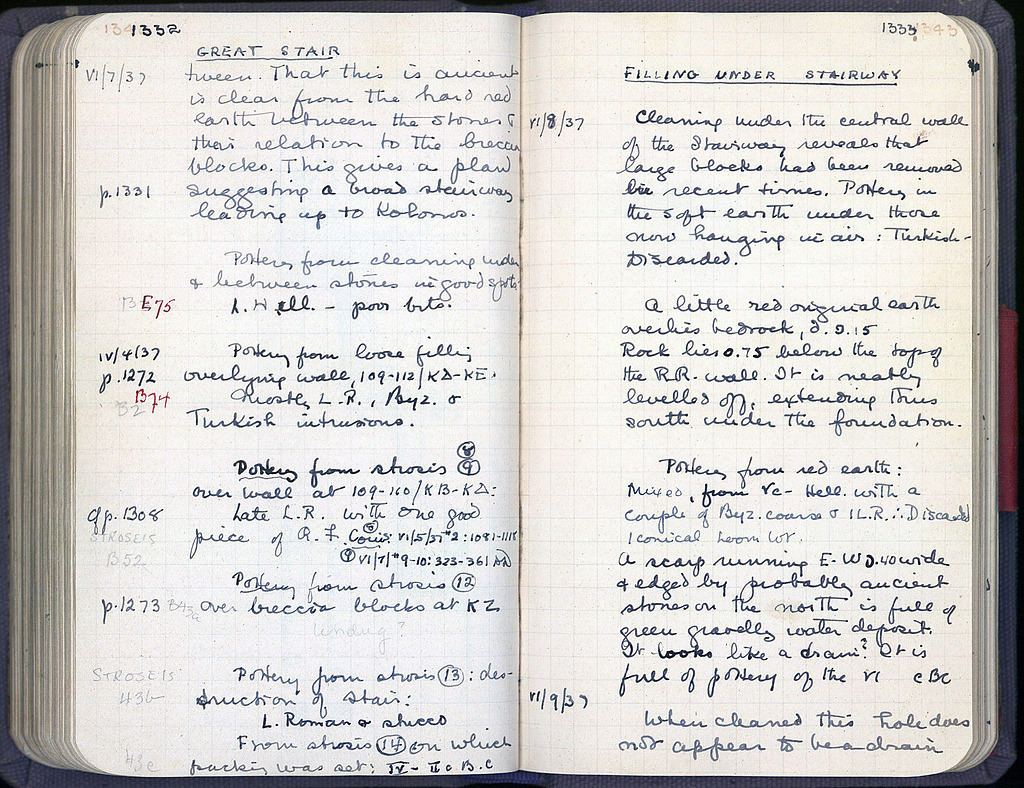 1332
GREAT STAIR
VI/7/37 tween. That this is ancient
is clear from the hard red
earth between the stones &
their relation to the breccia
blocks. This gives a plan
p.1331 suggesting a broad stairway
leading up to Kolonos.
Pottery from cleaning under
& between stones in good spots
E75 L. Hell. – poor bits.
IV/4/37 Pottery from loose filling
p.1272 overlying wall, 109-112/ΚΔ-ΚΕ.
B74 Mostly L.R., Byz. &
B2 Turkish intrusions.
Pottery from strosis 8 9
over wall at 109-110/ΚΒ-ΚΔ:
cf p.1308 Late L.R. with one good
STROSEIS piece of R.F. Coins: 8 VI/5/37 #2: 1081-1118
B52 9 VI/7/ #9-10: 323-361 AD
Pottery from strosis 12
p.1273 over breccia blocks at ΚΖ
undug?
STROSEIS Pottery from strosis 13: des-
43b truction of stair:
L. Roman & stucco
From strosis 14 on which
43c packing was set: IV – II c B.C
1333 1343
FILLING UNDER STAIRWAY
VI/8/37 Cleaning under the central wall
of the Stairway reveals that
large blocks had been removed
in recent times. Pottery in
the soft earth under those
now hanging in air: Turkish-
Discarded.
A little red original earth
overlies bedrock, d. 0.15
Rock lies 0.75 below the top of
the R.R. wall. It is neatly
levelled off, extending thus
south under the foundation.
Pottery from red earth:
Mixed, from Vc- Hell. with a
couple of Byz. coarse & 1 L.R. ∴ Discarded
1 conical Loom Wt.
A scarp running E-W 0.40 wide
& edged by probably ancient
stones on the north is full of
green gravelly water deposit.
It looks like a drain? It is
full of pottery of the VI c BC
VI/9/37
When cleaned this hole does
not appear to be a drain